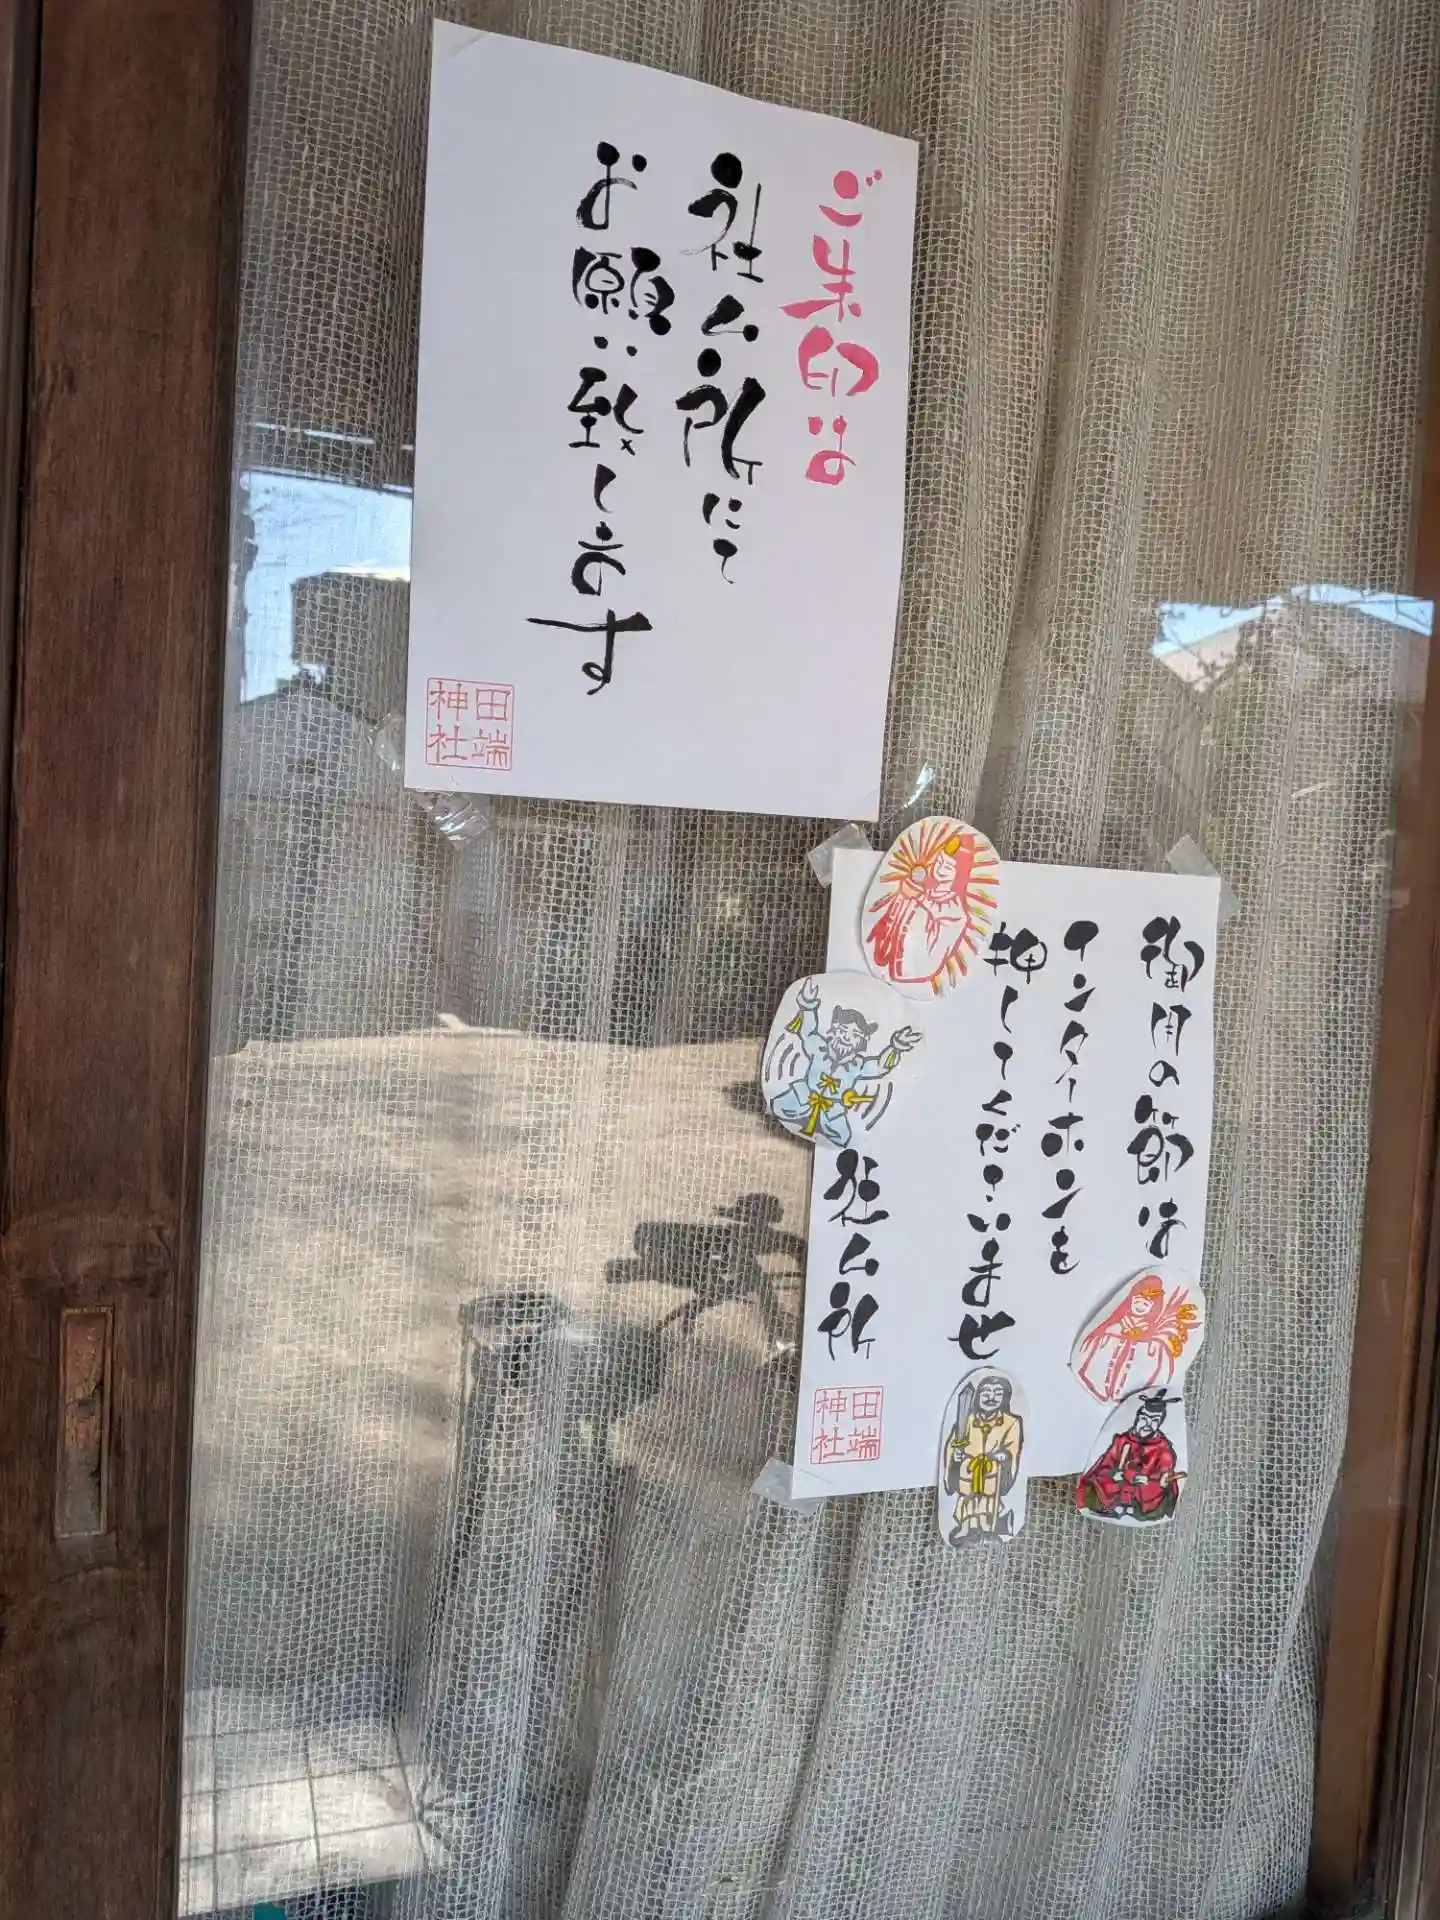 ご朱印は
社ム所にて
お願い致します
田端
神社
御用の節は
インターホンを
押してくださいませ
社ム所
田端
神社